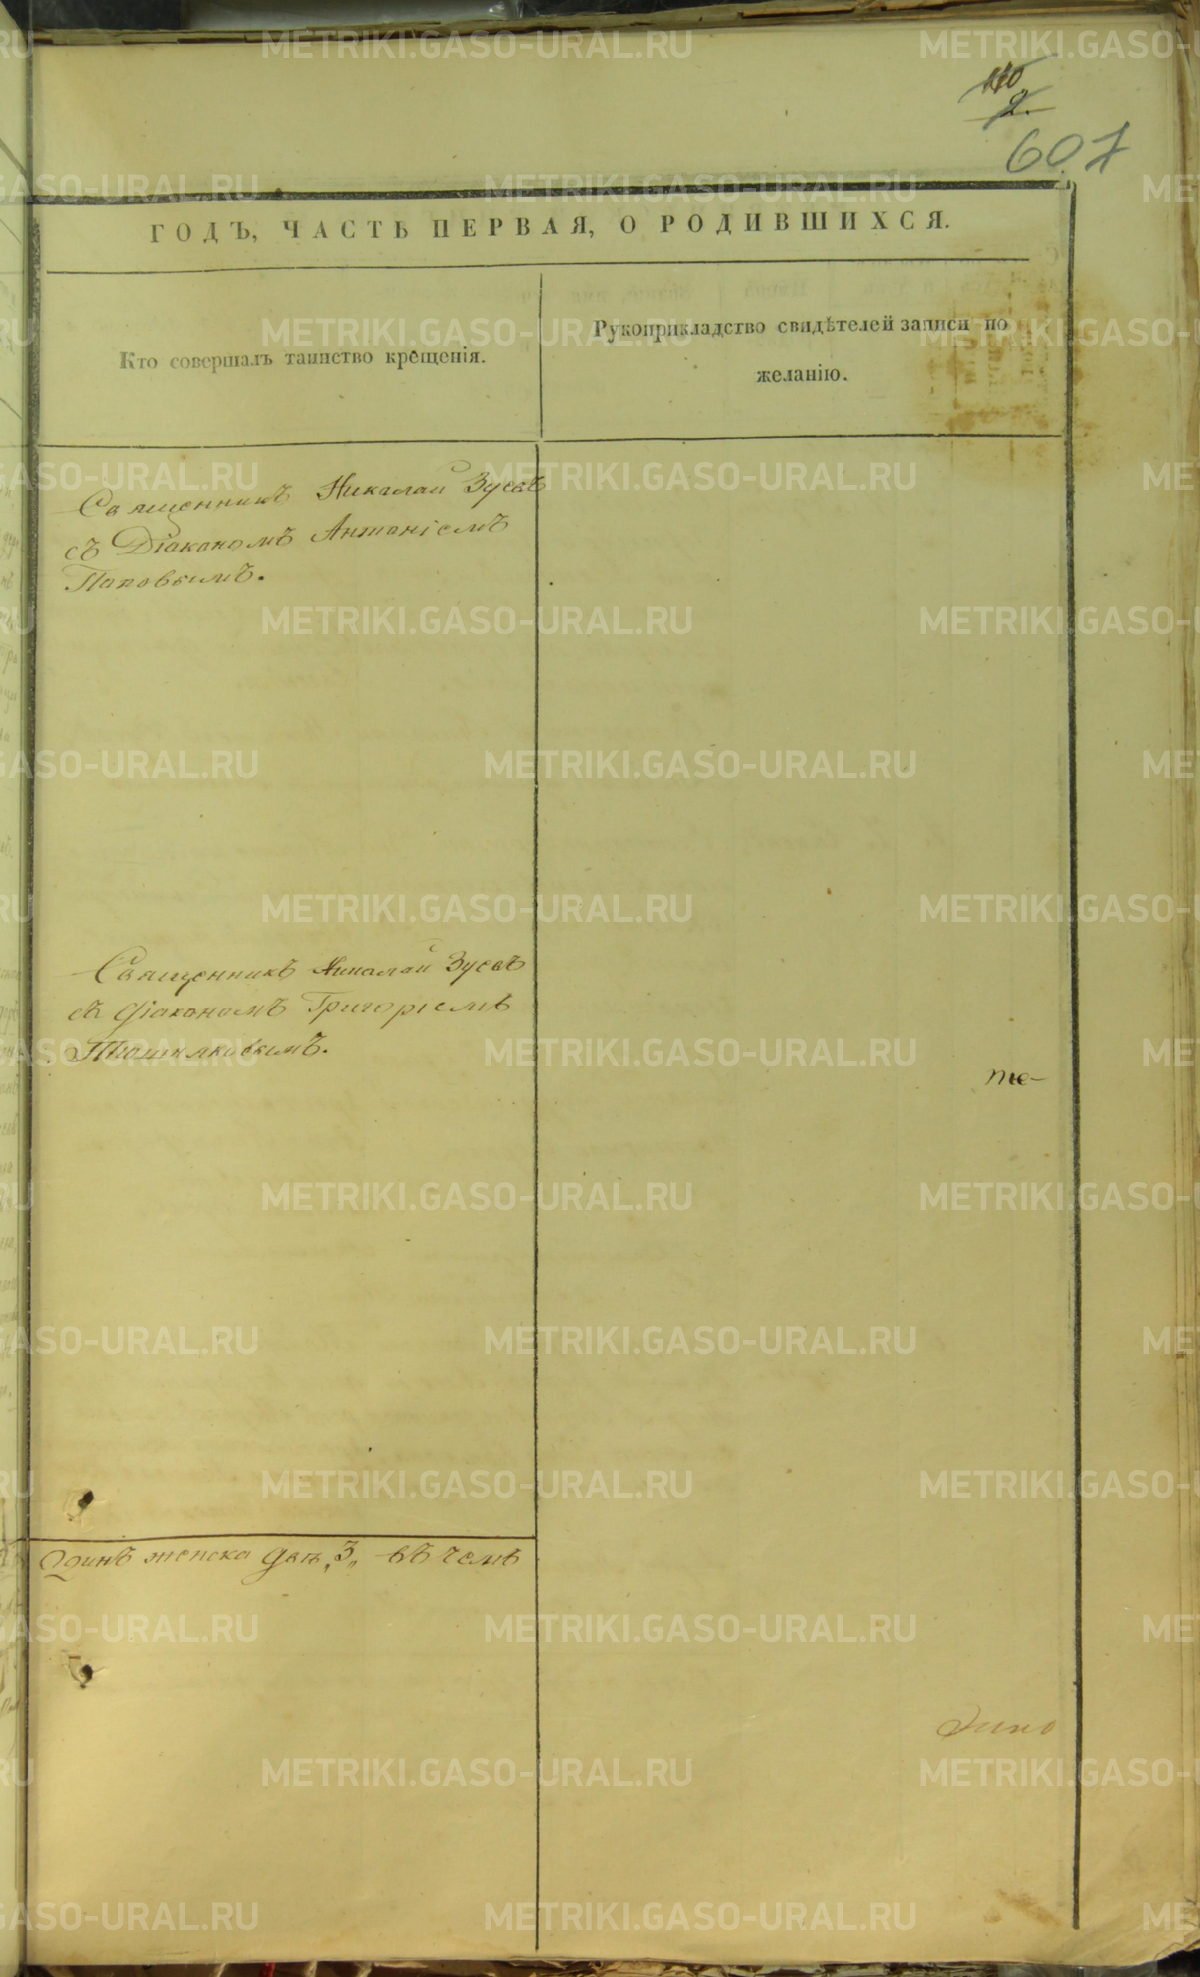 110
2.
607
ГОДЪ, ЧАСТЬ ПЕРВАЯ, О РОДИВШИХСЯ.
Кто совершалъ таинство крещенія.
Рукоприкладство свидѣтелей записи по
желанію.
Священникъ Николай Зуевъ
съ Діакономъ Антоніемъ
Поповымъ.
Священникъ Николай Зуевъ
съ діакономъ Григоріемъ
те-
одинъ женска два „3„ въ чемъ
METRIKI.GASO-URAL.RU